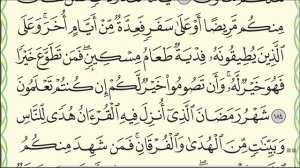 مِنكُم مَّرِيضًا أَوْ عَلَىٰ سَفَرٍ فَعِدَّةٌ مِّنْ أَيَّامٍ أُخَرَ ۚ وَعَلَى
ٱلَّذِينَ يُطِيقُونَهُۥ فِدْيَةٌ طَعَامُ مِسْكِينٍ ۖ فَمَن تَطَوَّعَ خَيْرًا
فَهُوَ خَيْرٌ لَّهُۥ ۚ وَأَن تَصُومُوا۟ خَيْرٌ لَّكُمْ ۖ إِن كُنتُمْ تَعْلَمُونَ
١٨٤ شَهْرُ رَمَضَانَ ٱلَّذِىٓ أُنزِلَ فِيهِ ٱلْقُرْءَانُ هُدًى لِّلنَّاسِ
وَبَيِّنَـٰتٍ مِّنَ ٱلْهُدَىٰ وَٱلْفُرْقَانِ ۚ فَمَن شَهِدَ مِنكُمُ